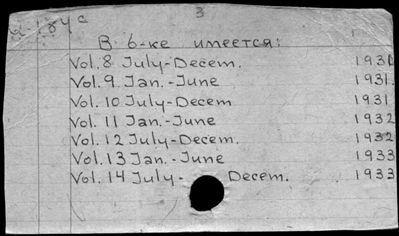 3
В б-ке имеется:
Vol. 8 July-Decem. 1930
Vol. 9 Jan.-June 1931.
Vol. 10 July-Decem 1931
Vol. 11 Jan.-June 1932
Vol. 12 July-Decem. 1932
Vol. 13 Jan.-June 1933
Vol. 14 July- Decem. 1933